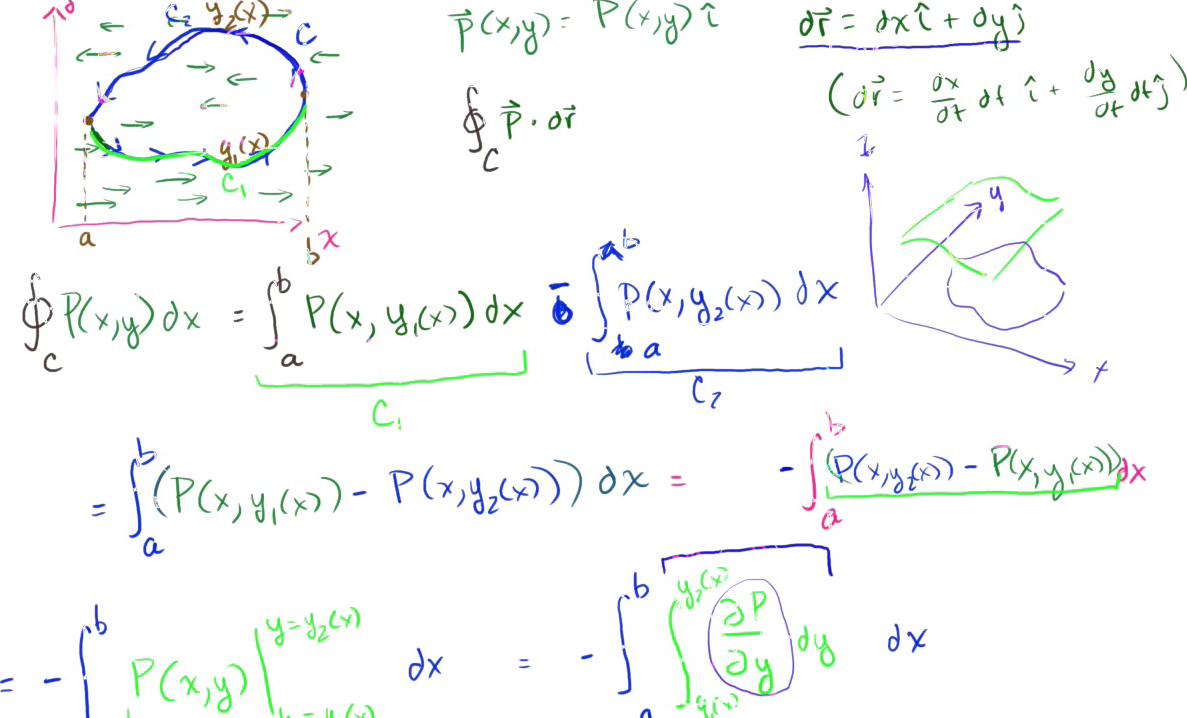 y₂(x)
C₂
C
y₁(x)
C₁
a
b
x
P⃗(x,y) = P(x,y) î
∮_C P⃗ · dr⃗
dr⃗ = dx î + dy ĵ
(dr⃗ = dx/dt dt î + dy/dt dt ĵ)
y
x
∮_C P(x,y) dx = ∫_a^b P(x, y₁(x)) dx - ∫_a^b P(x, y₂(x)) dx
C₁
C₂
= ∫_a^b (P(x, y₁(x)) - P(x, y₂(x))) dx = - ∫_a^b (P(x, y₂(x)) - P(x, y₁(x))) dx
= - ∫^b P(x,y) |^{y=y₂(x)} dx = - ∫_a^b ∫_{y₁(x)}^{y₂(x)} ∂P/∂y dy dx